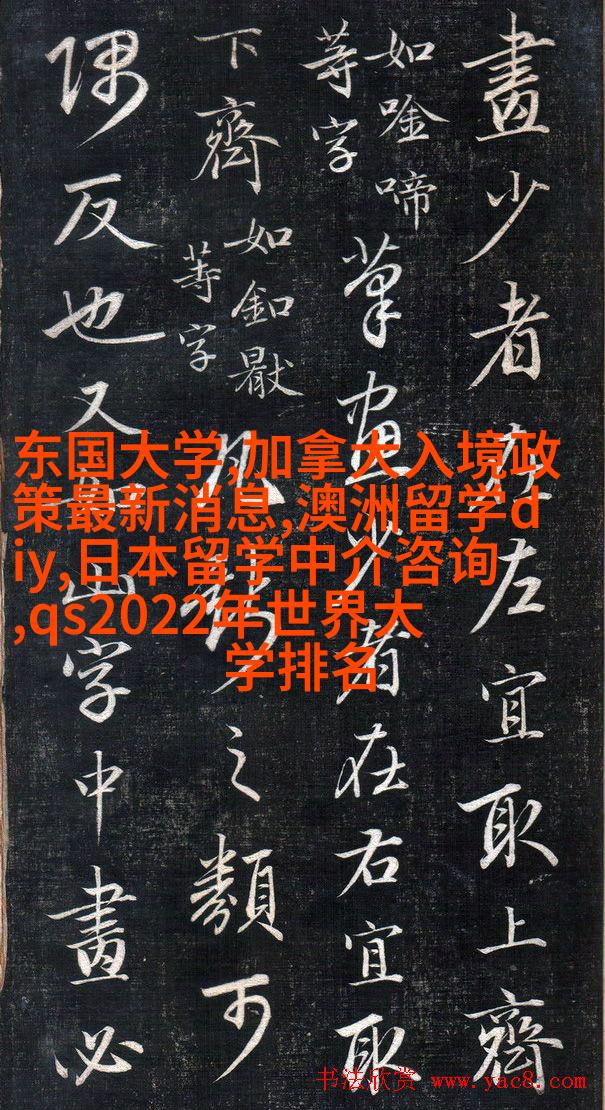 畫少者在左宜取上齊
如唫啼
等字
筆畫少者在右宜取
下齊
如釦
等字
之類可
隅反也又如山字中畫必
东国大学,加拿大入境政
策最新消息,澳洲留学d
iy,日本留学中介咨询
,qs2022年世界大
学排名
书法欣赏 www.yac8.com